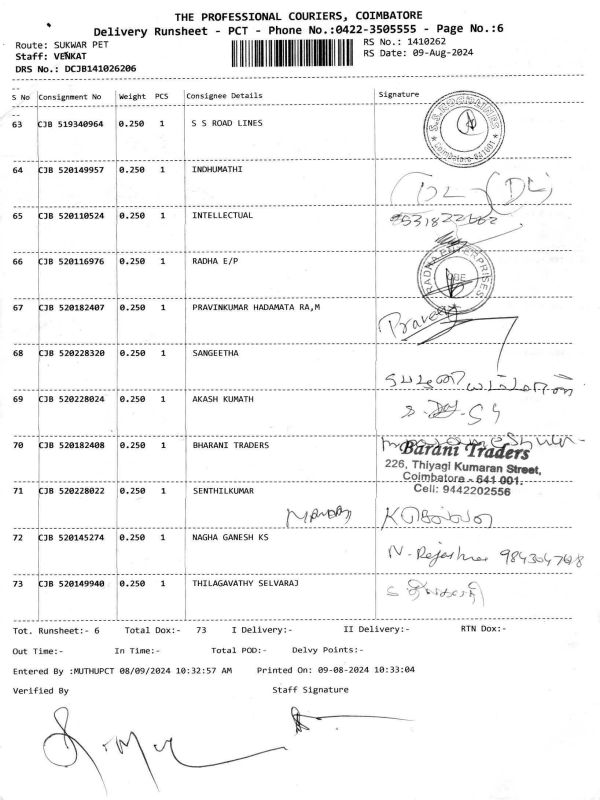 THE PROFESSIONAL COURIERS, COIMBATORE
Delivery Runsheet - PCT - Phone No.:0422-3505555 - Page No.:6
Route: SUKWAR PET
RS No.: 1410262
Staff: VENKAT
RS Date: 09-Aug-2024
DRS No.: DCJB141026206
S No Consignment No Weight PCS Consignee Details Signature
63 CJB 519340964 0.250 1 S S ROAD LINES
S.S. ROADLINES
Coimbatore 641001
64 CJB 520149957 0.250 1 INDHUMATHI
65 CJB 520110524 0.250 1 INTELLECTUAL
66 CJB 520116976 0.250 1 RADHA E/P
RADHA ENTERPRISES
CBE
67 CJB 520182407 0.250 1 PRAVINKUMAR HADAMATA RA,M
Praveen
68 CJB 520228320 0.250 1 SANGEETHA
69 CJB 520228024 0.250 1 AKASH KUMATH
70 CJB 520182408 0.250 1 BHARANI TRADERS
Barani Traders
226, Thiyagi Kumaran Street,
Coimbatore - 641 001.
Cell: 9442202556
71 CJB 520228022 0.250 1 SENTHILKUMAR
72 CJB 520145274 0.250 1 NAGHA GANESH KS
73 CJB 520149940 0.250 1 THILAGAVATHY SELVARAJ
Tot. Runsheet:- 6 Total Dox:- 73 I Delivery:- II Delivery:- RTN Dox:-
Out Time:- In Time:- Total POD:- Delvy Points:-
Entered By :MUTHUPCT 08/09/2024 10:32:57 AM Printed On: 09-08-2024 10:33:04
Verified By Staff Signature